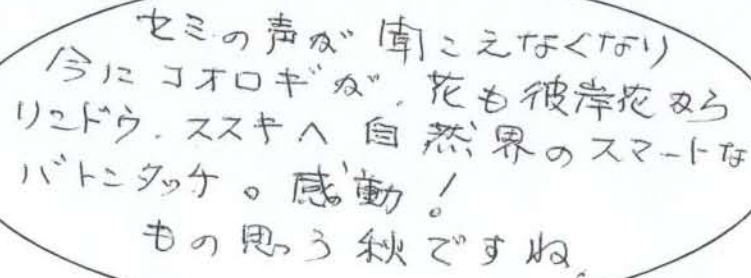 セミの声が聞こえなくなり
今にコオロギが、花も彼岸花から
リンドウ、ススキへ自然界のスマートな
バトンタッチ。感動!
もの思う秋ですね。